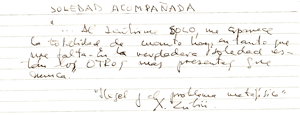 SOLEDAD ACOMPAÑADA
"... Al sentirme SOLO me aparece
la totalidad de cuanto hay, en tanto que
me falta. En la verdadera soledad es-
tán los OTROS más presentes que
nunca."
"Hegel y el problema metafísico"
X. Zubiri